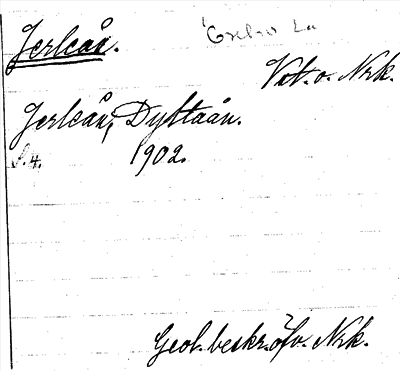 Jerleån. Örebro Lä
Vat. o. Nrk.
Jerleån, Dyltaån.
S. 4. 1902.
Geol. beskr. öfv. Nrk.